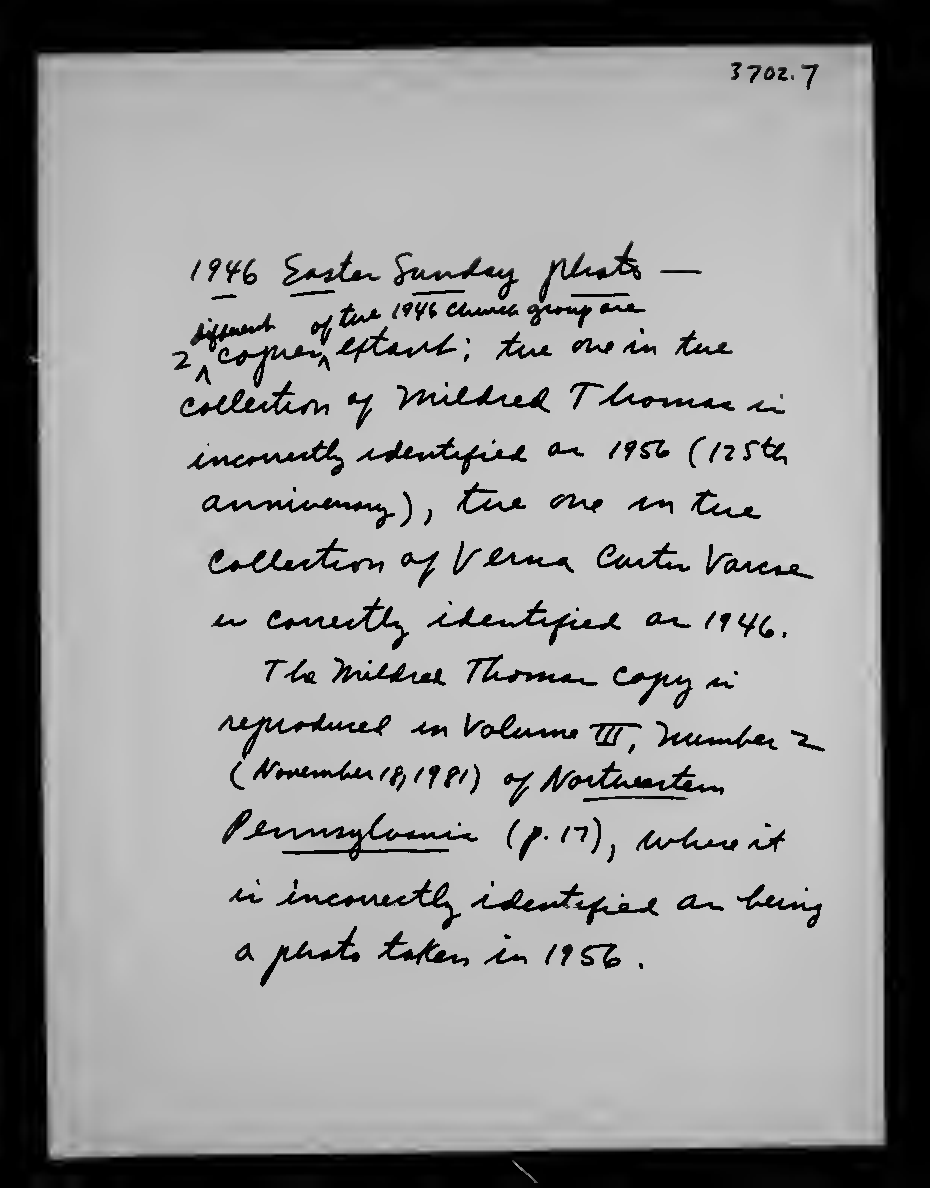 3702.7
1946 Easter Sunday photo —
different of the 1946 church group are
2 copies extant; the one in the
collection of Mildred Thomas is
incorrectly identified as 1956 (125th
anniversary), the one in the
collection of Verna Carter
is correctly identified as 1946.
The Mildred Thomas copy is
reproduced in Volume III, Number 2
(November 18, 1981) of Northwestern
Pennsylvania (p. 17), where it
is incorrectly identified as being
a photo taken in 1956.